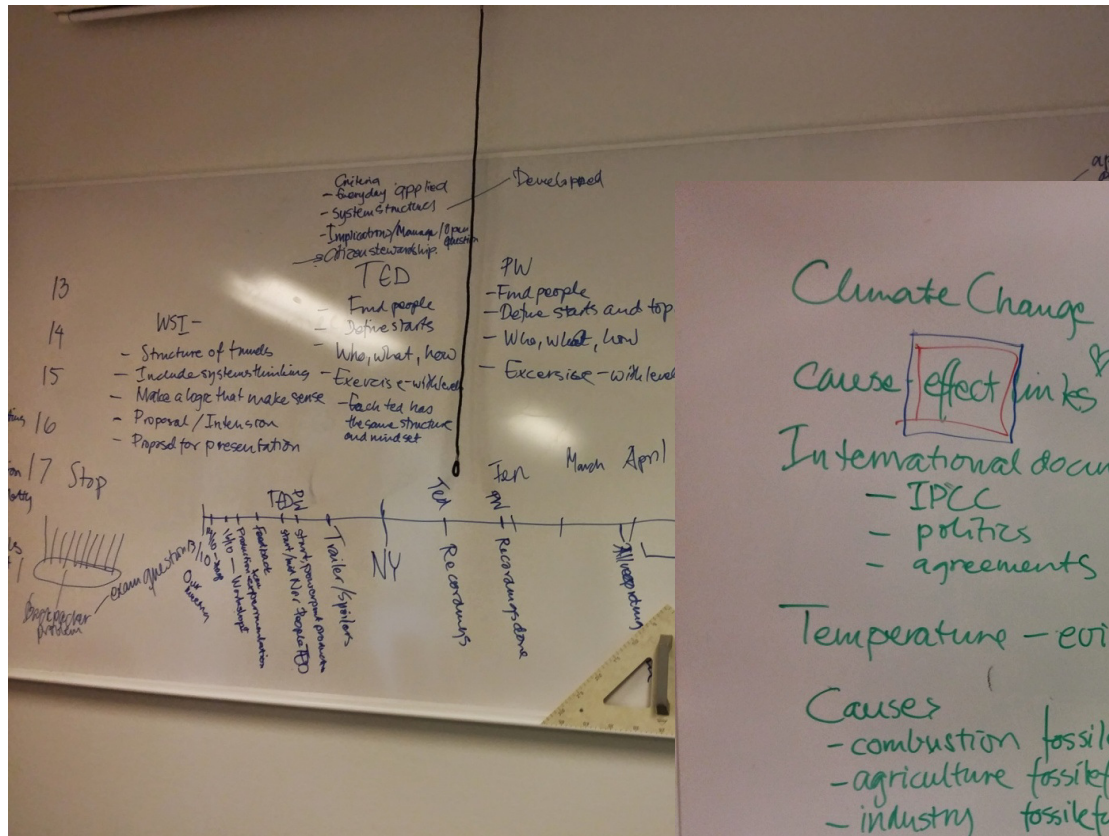 Criteria
- Everyday applied
- System structures
- Implications/Manage/Open question
Citizen stewardship.
Developed
13
14
15
16
17 Stop
WSI-
- Structure of
- Include systems thinking
- Make a logic that make sense
- Proposal / Intension
- Proposal for presentation
TED
- Find people
- Define starts
- Who, what, how
- Exercise - with level
- Each ted has
the same structure
and mindset
PW
- Find people
- Define starts and top
- Who, what, how
- Excersise - with level
March April
Ted
PW
exam questions
Feedback
Workshops
TED
PW
Trailer/
NY
Recordings
Recordings done
problem
Climate Change
cause - effect links
International docum
- IPCC
- politics
- agreements
Temperature - evi
Causes
- combustion fossile
- agriculture fossilef
- industry fossilefo